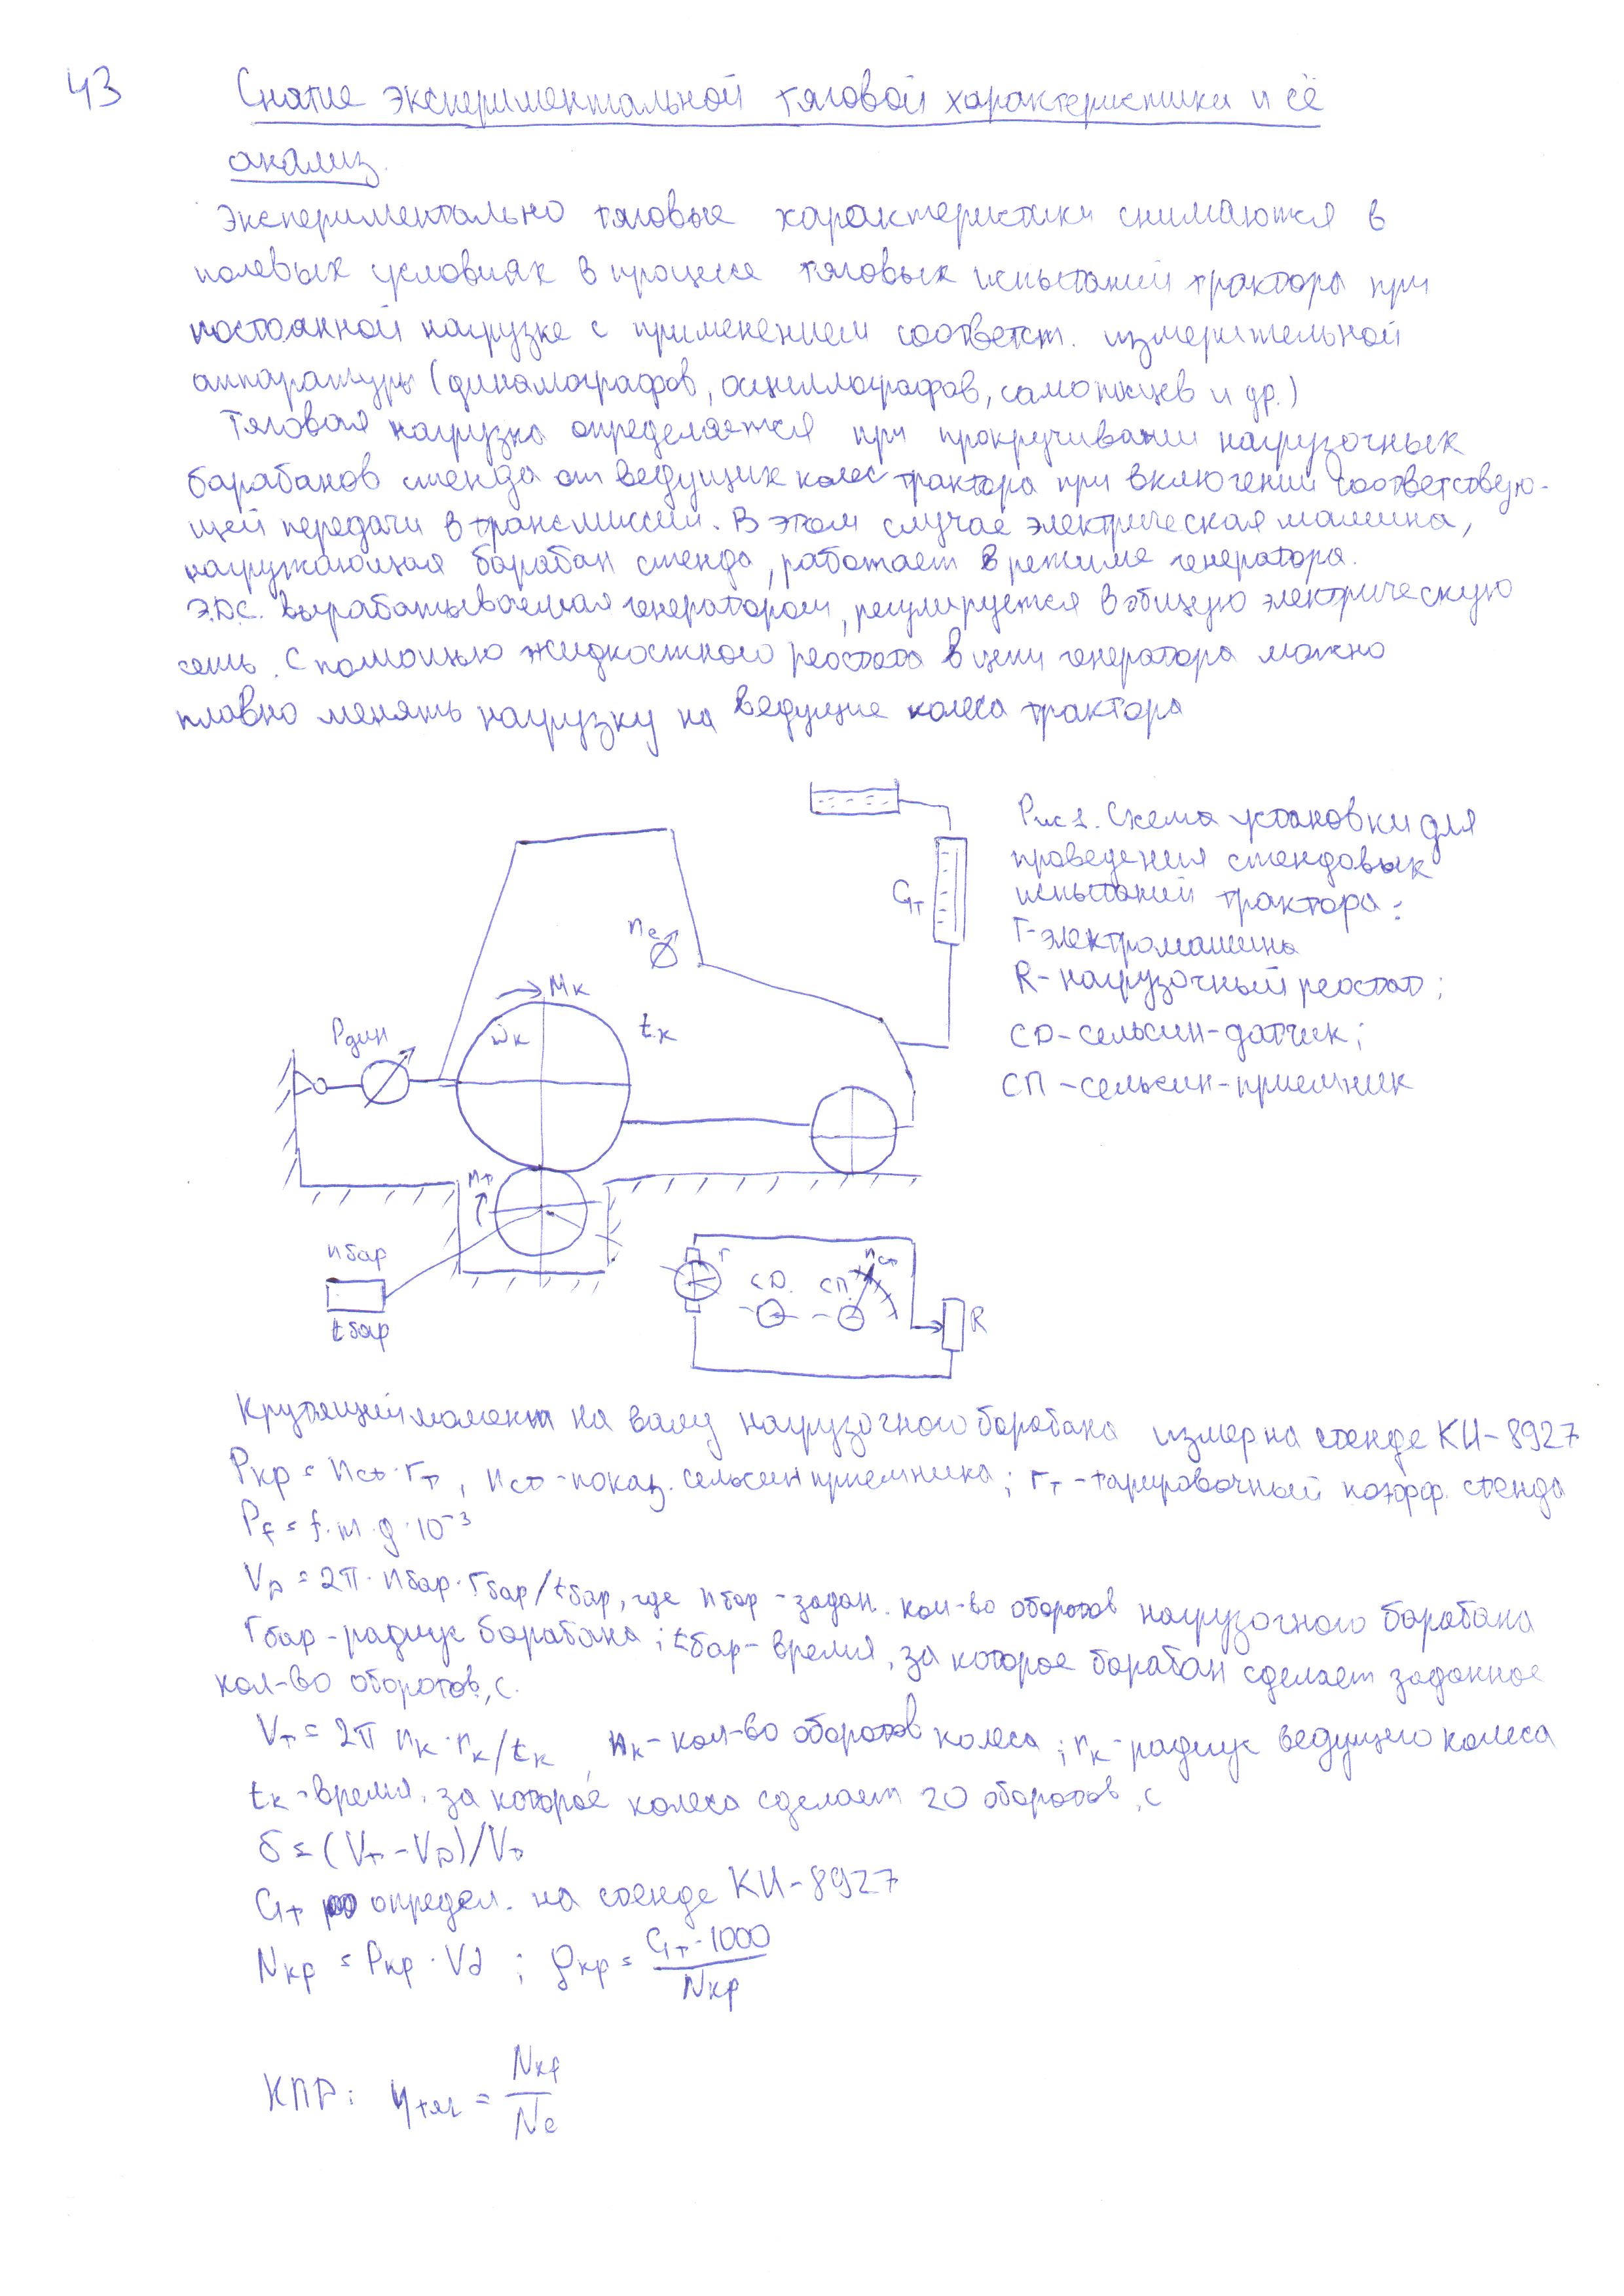 43
Снятие экспериментальной тяговой характеристики и её
анализ.
Экспериментально тяговые характеристики снимаются в
полевых условиях в процессе тяговых испытаний трактора при
постоянной нагрузке с применением соответст. измерительной
аппаратуры (динамографов, осциллографов, самописцев и др.)
Тяговая нагрузка определяется при прокручивании нагрузочных
барабанов стенда от ведущих колес трактора при включении соответствую-
щей передачи в трансмиссии. В этом случае электрическая машина,
нагружающая барабан стенда, работает в режиме генератора.
Э.Д.С. вырабатываемая генератором, регулируется в общую электрическую
сеть. С помощью жидкостного реостата в цепи генератора можно
плавно менять нагрузку на ведущие колеса трактора
Рис 1. Схема установки для
проведения стендовых
испытаний трактора:
Г-электромашина
R-нагрузочный реостат;
СД-сельсин-датчик;
СП-сельсин-приемник
Gт
nе
Mк
ωк
tк
Pдин
Mт
nбар
tбар
Г
СД.
СП.
nст
R
Крутящий момент на валу нагрузочного барабана измер на стенде КИ-8927
Pкр = nст·rт, nст-показ. сельсин приемника; rт-тарировочный коэфф. стенда
Pf = f·m·g·10⁻³
Vд = 2π·nбар·rбар/tбар, где nбар-задан. кол-во оборотов нагрузочного барабана
rбар-радиус барабана; tбар-время, за которое барабан сделает заданное
кол-во оборотов, с.
Vт = 2π nк·rк/tк, nк-кол-во оборотов колеса; rк-радиус ведущего колеса
tк-время, за которое колеса сделает 20 оборотов, с
δ = (Vт-Vд)/Vт
Gт определ. на стенде КИ-8927
Nкр = Pкр·Vд; gкр = Gт·1000/Nкр
КПД: ηтяг = Nкр/Ne